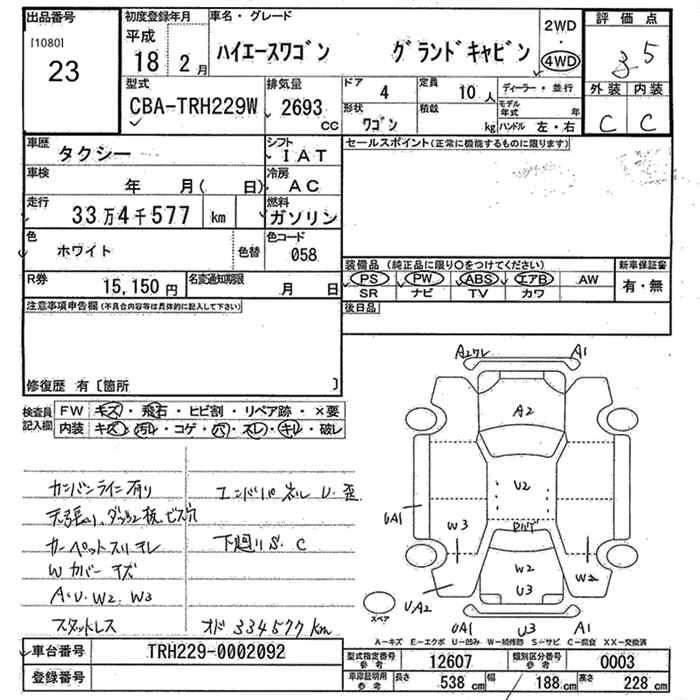 出品番号
[1080]
23
初度登録年月
平成
18 2月
車名・グレード
ハイエースワゴン グランドキャビン
2WD
・
4WD
評価点
3.5
外装 内装
C C
型式
CBA-TRH229W
排気量
2693 cc
ドア 4
形状 ワゴン
定員 10人
積載 kg
ディーラー・並行
モデル年式 年
ハンドル 左・右
車歴 タクシー
シフト IAT
車検 年 月( 日)
冷房 AC
走行 33万4千577 km
燃料 ガソリン
色 ホワイト 色替
色コード 058
R券 15,150円
名変通知期限 月 日
セールスポイント(正常に機能するものに限ります)
装備品(純正品に限り○をつけてください)
PS PW ABS エアB AW
SR ナビ TV カワ
新車保証書
有・無
後日品
注意事項申告欄(不具合内容等は具体的に記入して下さい)
修復歴 有〔箇所 〕
検査員記入欄
FW キズ・飛石・ヒビ割・リペア跡・×要
内装 キズ・汚レ・コゲ・穴・スレ・キレ・破レ
カンバンライン有り
天張り、ダッシュ板、ビス穴
カーペットスリキレ
Wカバーキズ
A.U.W2.W3
スタッドレス
エンドパネル U.歪
下廻りS.C
オド 334577km
A2ワレ A1
A2
U2
UA1
W3
W2
W2
U3
UA2
UA1 U3 A1
スペア
A－キズ E－エクボ U－凹み W－補修跡 S－サビ C－腐食 XX－交換済
車台番号 TRH229-0002092
型式指定番号 参考 12607
類別区分番号 参考 0003
車庫証明用 参考 長さ 538cm 幅 188cm 高さ 228cm